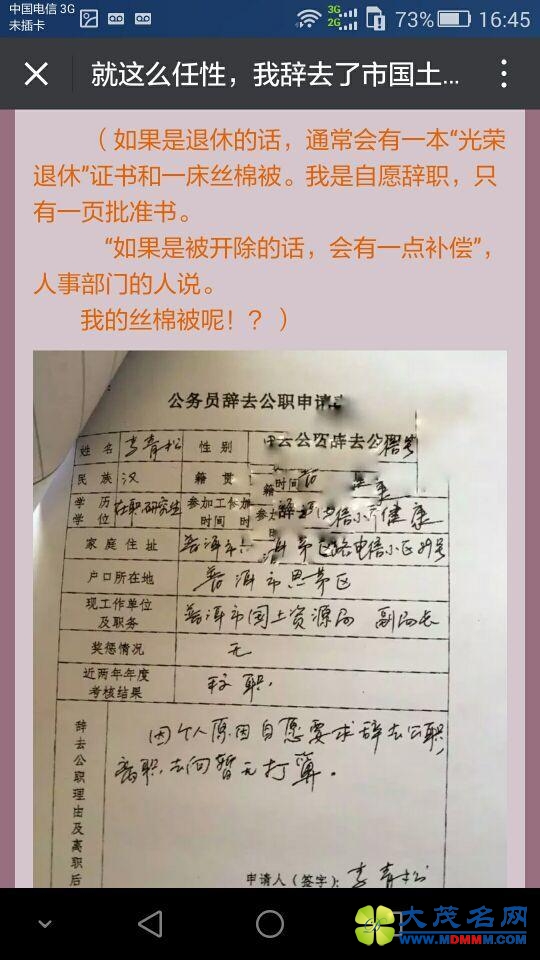 中国电信 3G
未插卡
3G
2G
73%
16:45
就这么任性，我辞去了市国土...
（如果是退休的话，通常会有一本“光荣
退休”证书和一床丝棉被。我是自愿辞职，只
有一页批准书。
“如果是被开除的话，会有一点补偿”，
人事部门的人说。
我的丝棉被呢！？）
公务员辞去公职申请
姓名 李青松 性别
民族 汉 籍贯
学历 在职研究生 参加工作
学位 时间 健康
家庭住址 普洱市 电信小区39号
户口所在地 普洱市思茅区
现工作单位 普洱市国土资源局 副局长
及职务
奖惩情况 无
近两年年度 称职.
考核结果
辞去公职理由及离职后
因个人原因自愿要求辞去公职,
离职去向暂无打算.
申请人（签字）：李青松
大茂名网
www.MDMMM.com